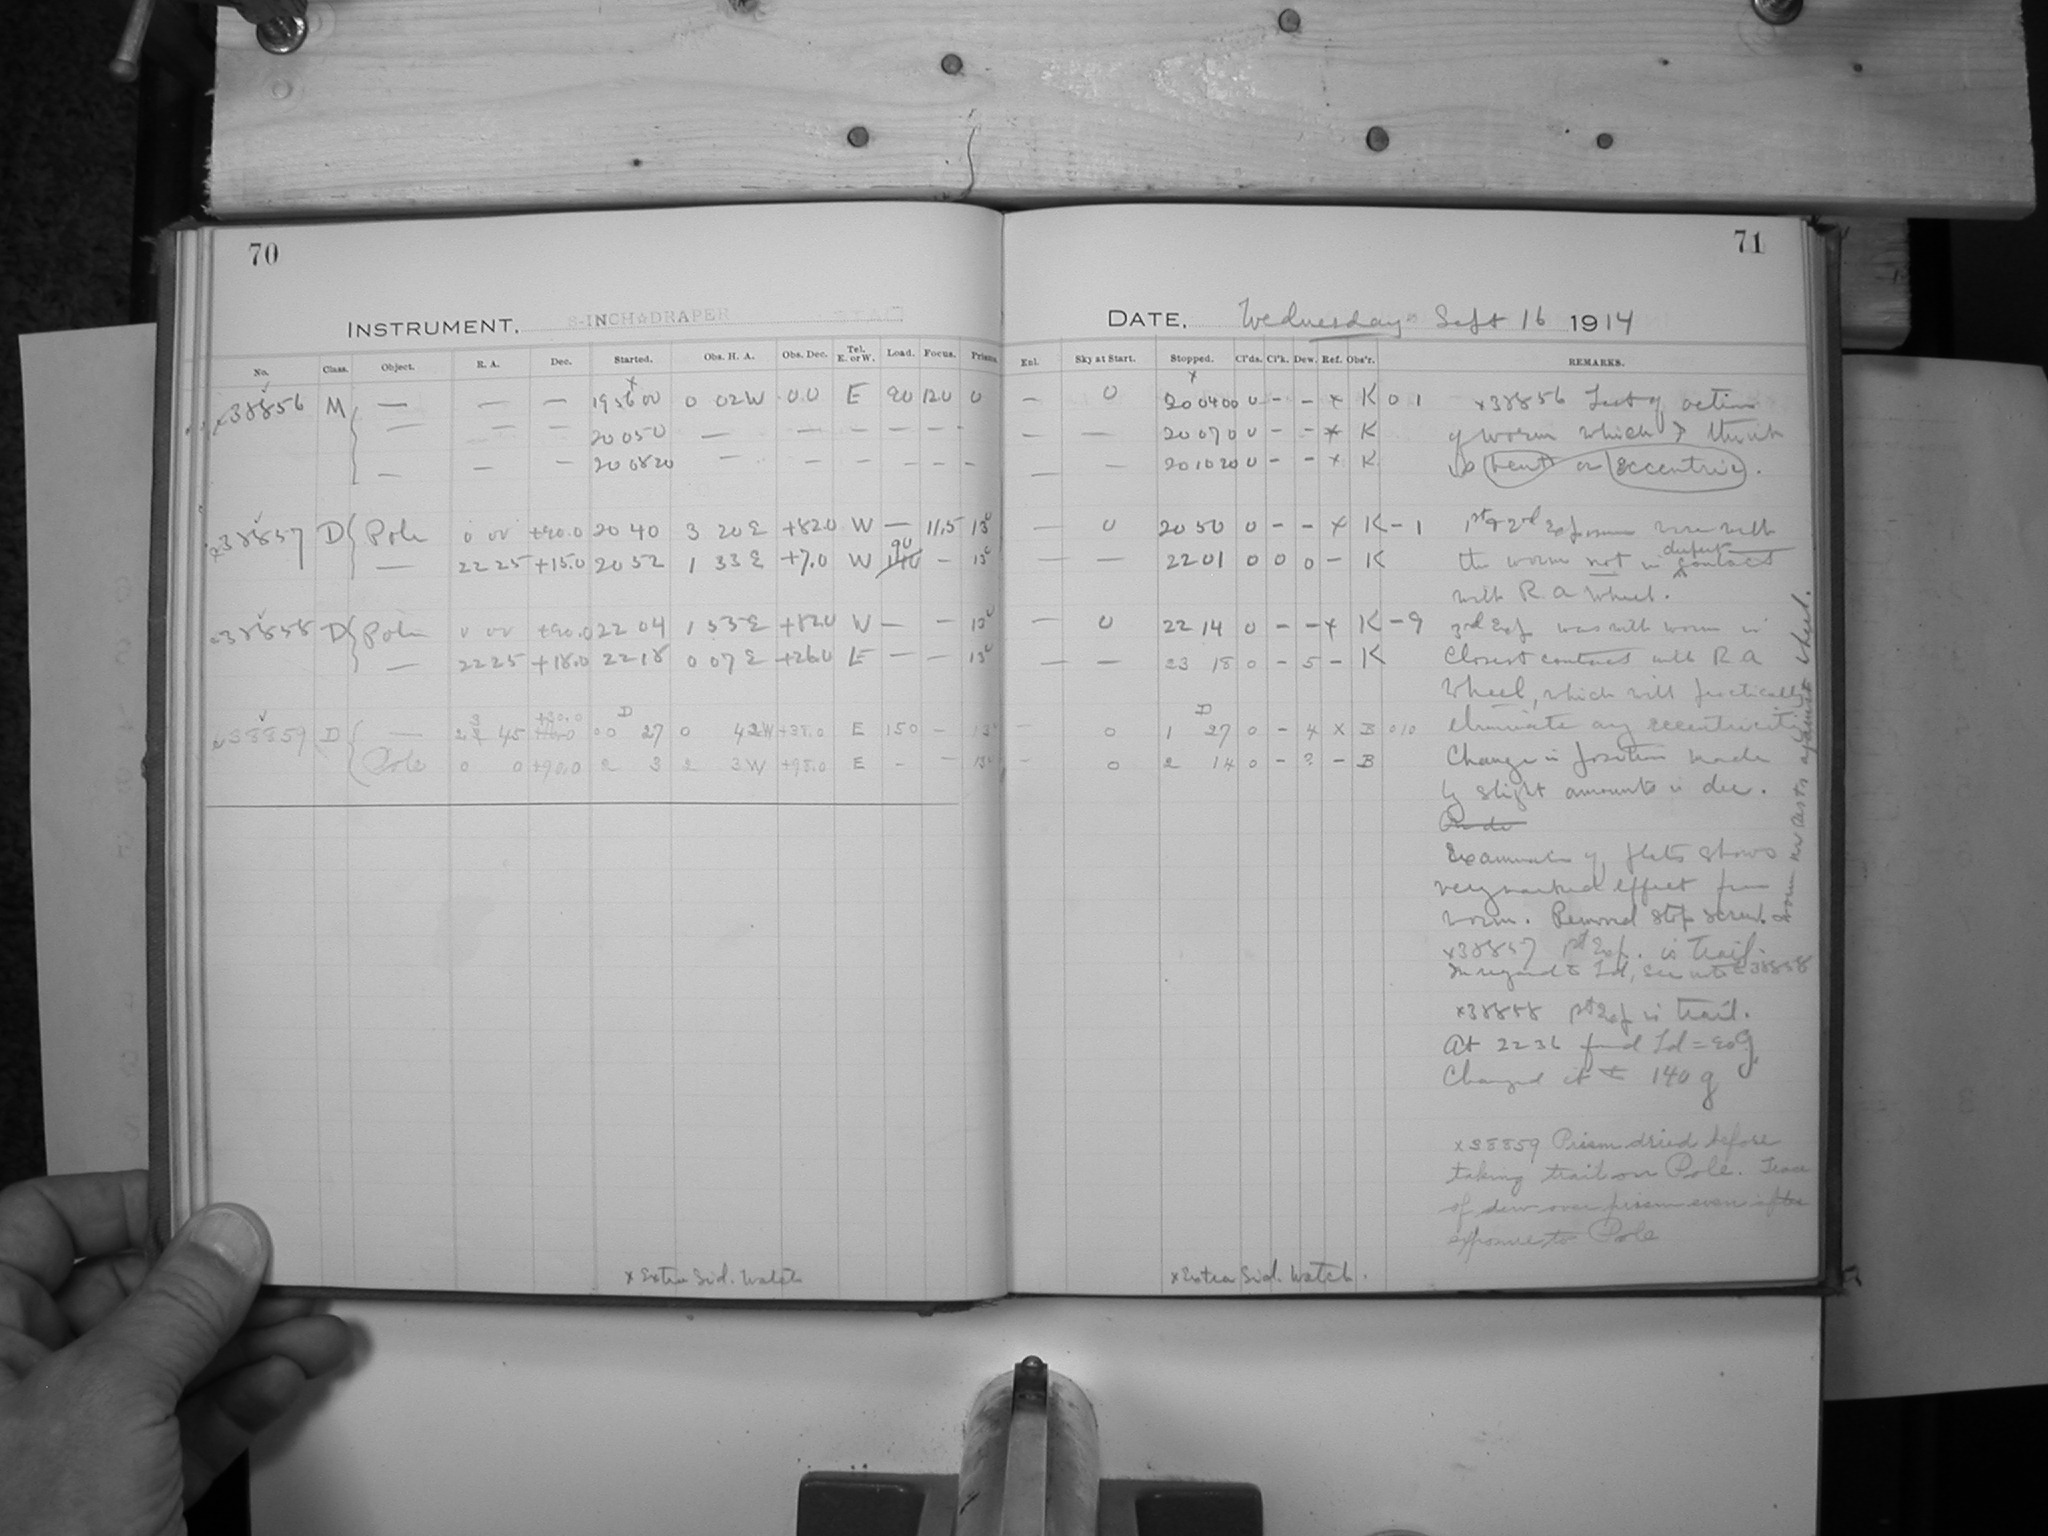 70
71
INSTRUMENT. 8-INCH DRAPER
DATE. Wednesday Sept 16 1914
No. Class. Object. R. A. Dec. Started. Obs. H. A. Obs. Dec. Tel. E. or W. Load. Focus. Prisms.
Enl. Sky at Start. Stopped. Cl'ds. Cl'k. Dew. Ref. Obs'r. REMARKS.
x38856 M — — — 19 56 00 0 02W 00 E 90 12.0 0
— 0 20 04 00 0 - - x K 0 1
— — — 20 05 0 — — — — — —
— — 20 07 0 0 - - x K
— — — 20 08 20 — — — — — —
— — 20 10 20 0 - - x K
x38857 D Pole 0 00 +90.0 20 40 3 20E +82.0 W — 11.5 13°
— 0 20 50 0 - - x K - 1
— 22 25 +15.0 20 52 1 33E +7.0 W 90 140 - 13°
— — 22 01 0 0 0 - K
x38858 D Pole 0 00 +90.0 22 04 1 53E +82.0 W — — 13°
— 0 22 14 0 - - x K - 9
— 22 25 +18.0 22 18 0 07E +26.0 E — — 13°
— — 23 18 0 - 5 - K
x38859 D — 45 +30.0 00 27 0 42W +38.0 E 150 - 13°
— 0 1 27 0 - 4 x B 0 10
Pole 0 0 +90.0 2 3 2 3W +98.0 E - - 13°
— 0 2 14 0 - ? - B
x38856 Test of action
of worm which I think
is bent or eccentric.
1st & 2nd Exposures were with
the worm not in contact
with R.A wheel.
3rd Exp was with worm in
Closest contact with R A
Wheel, which will practically
eliminate any eccentricity
Change in position made
by slight amounts in dec.
Examination of plate shows
very marked effect from
worm. Removed stop screw &
worm now rests against wheel.
x38857 1st Exp. is trail.
In regard to Ld, see note x38858
x38858 1st Exp is trail.
At 22 36 found Ld = 90g.
Changed it to 140 g
x38859 Prism dried before
taking trail on Pole. Trace
of dew over prism even after
exposure to Pole
x Extra Sid. Watch
x Extra Sid. Watch.